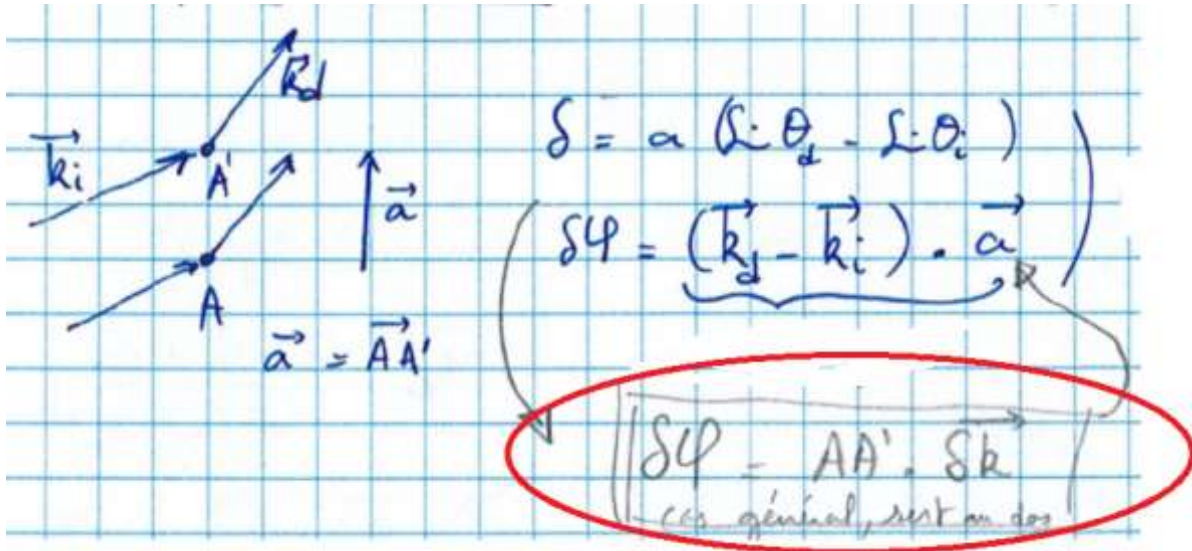 k⃗d
k⃗i
A'
a⃗
A
a⃗ = A⃗A'
δ = a (Sin θd - Sin θi)
δφ = (k⃗d - k⃗i) . a⃗
δφ = AA' . δ⃗k
cas général, sert au dos